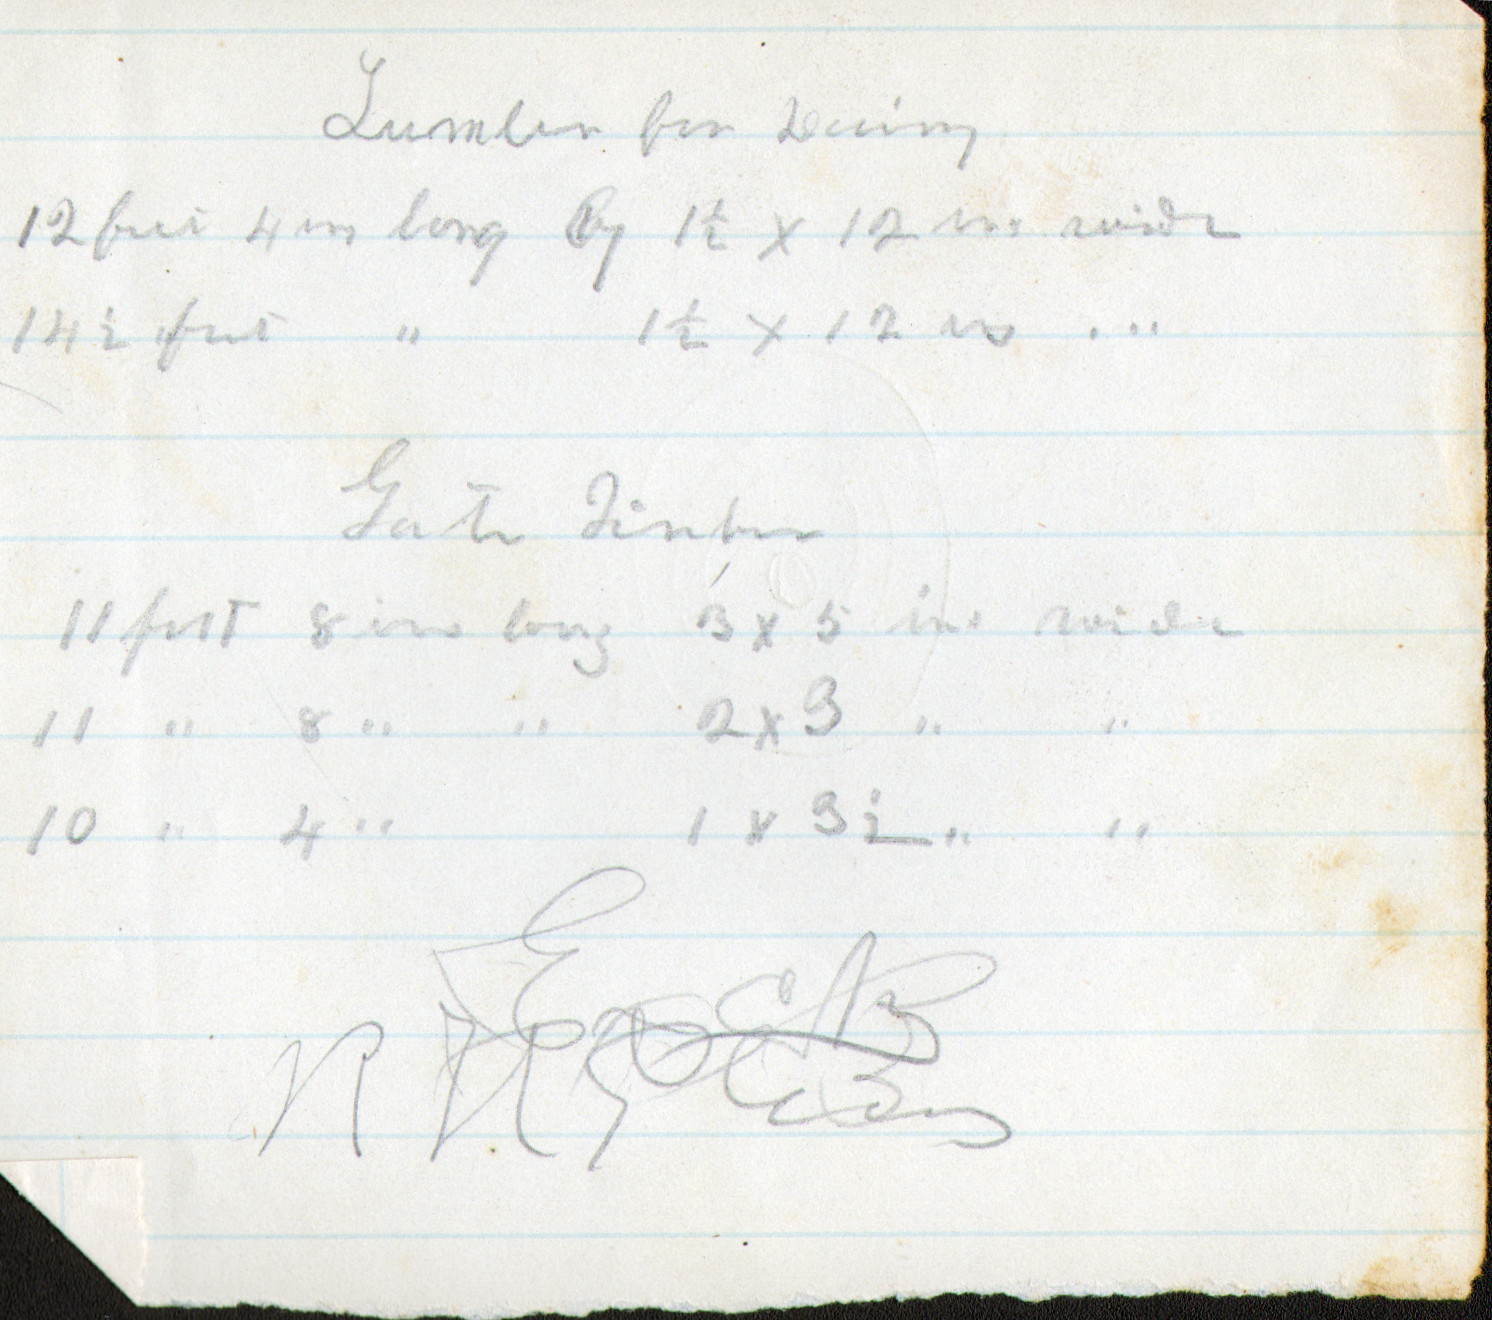 Lumber for Dairy
12 feet 4 in long By 1½ x 12 ins wide
14½ feet " 1½ x 12 ins "
Gate Timber
11 feet 8 ins long 3 x 5 ins wide
11 " 8 " " 2 x 3 " "
10 " 4 " 1 x 3½ " "